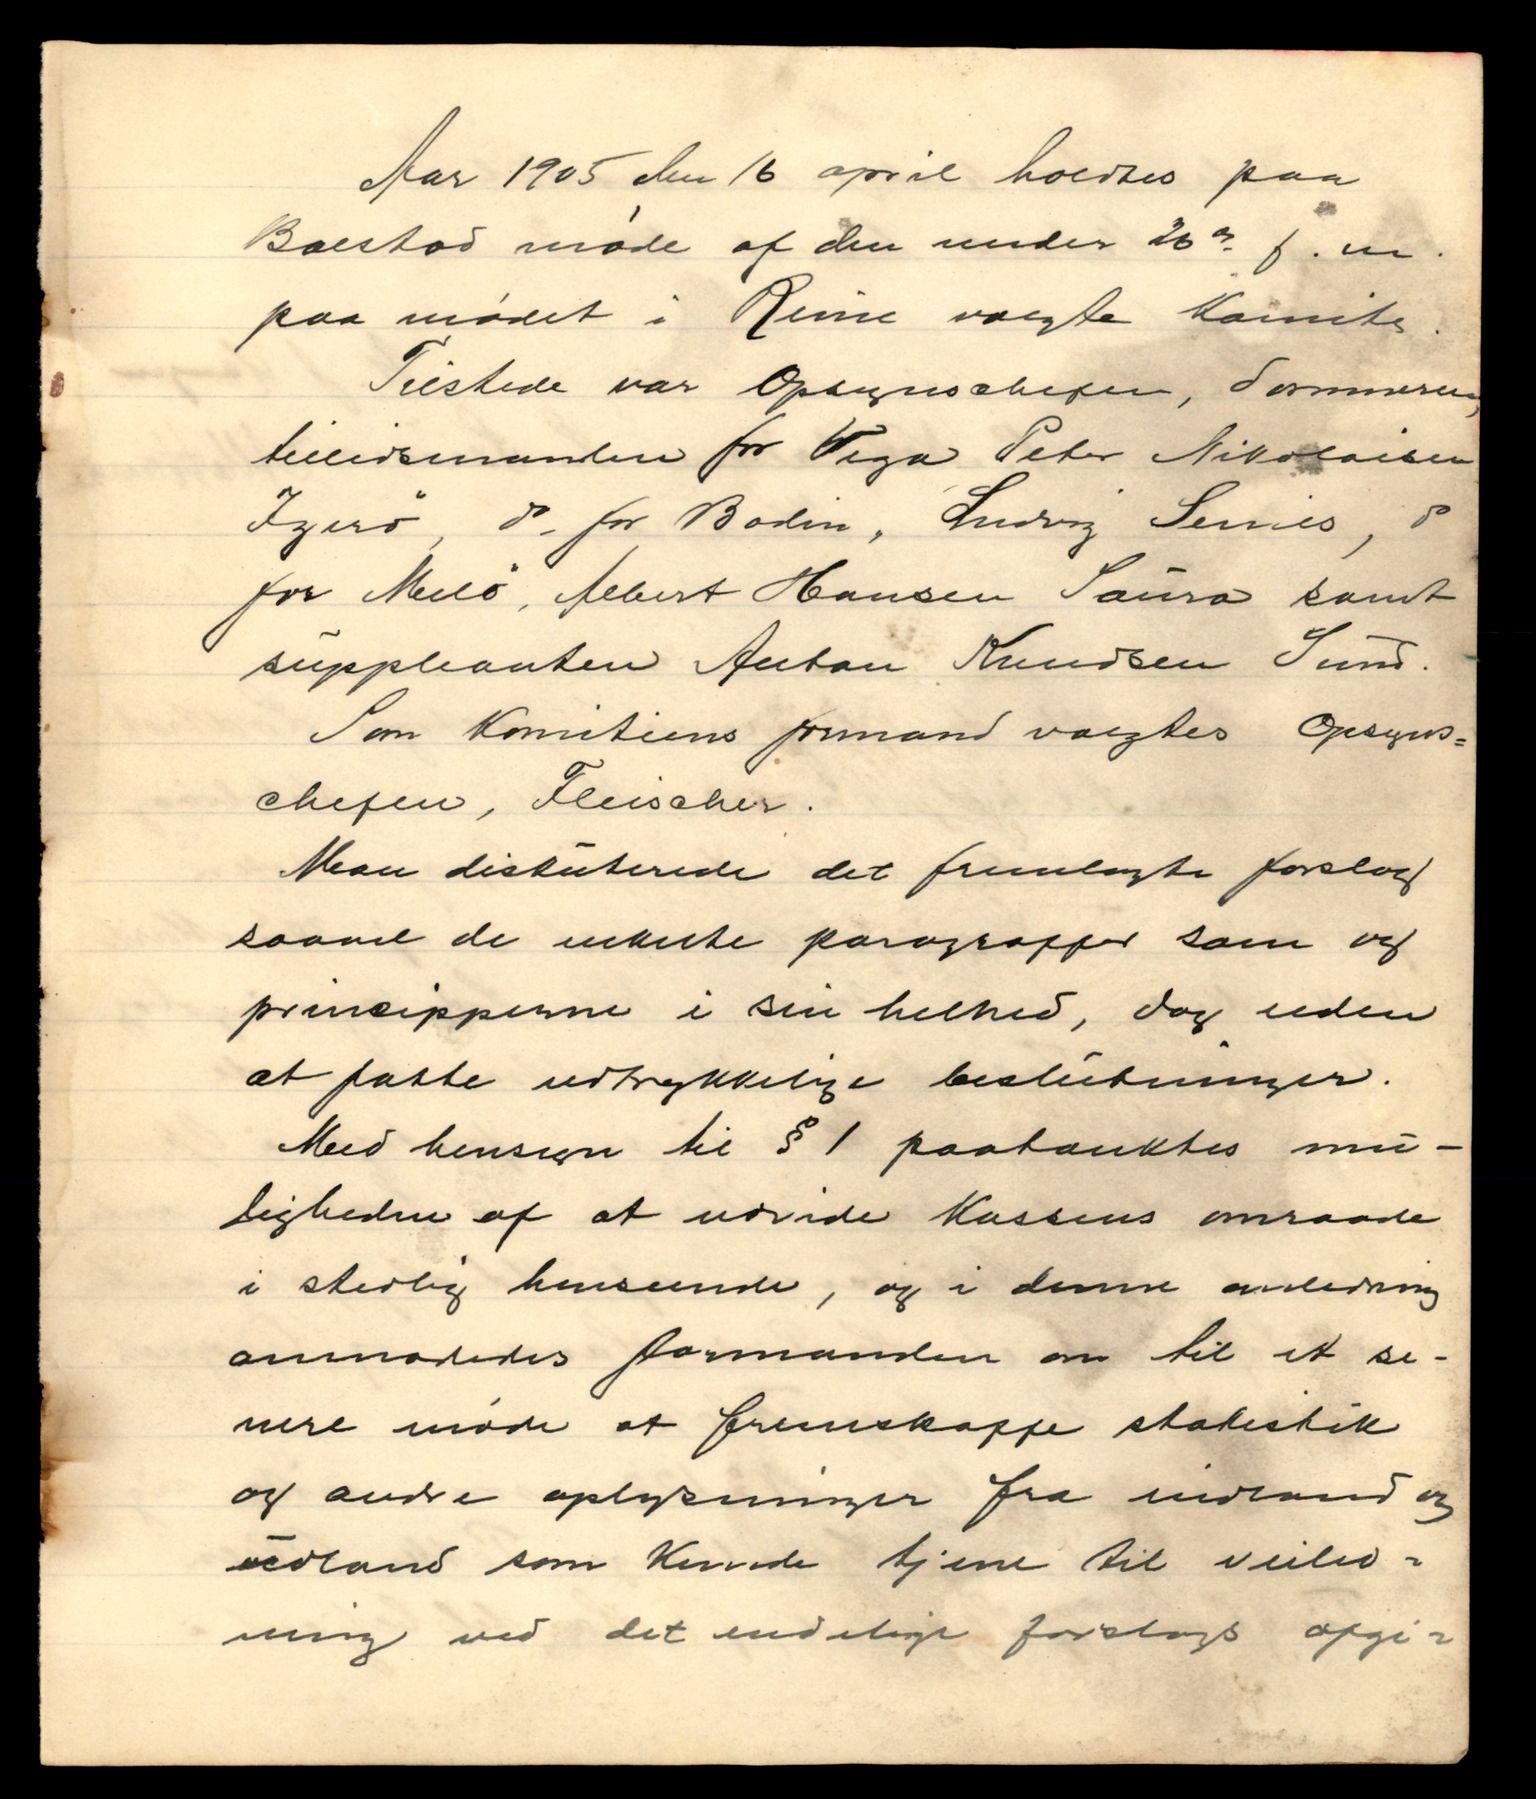 Aar 1905 den 16 april holdtes paa
Balstad møde af den under 26 f. m.
paa mødet i Reine valgte Komite.
Tilstede var Opsynschefen, Dommeren,
tillidsmanden for Vega Peter Nikolaisen
Igerö, do for Bodin, Ludvig Seines, do
for Melö, Albert Hansen Saura samt
suppleanten Anton Knudsen Sund.
Som Komitiens formand valgtes Opsyns=
chefen, Fleischer.
Man diskuterede det fremlagte forslag
saavel de enkelte paragraffer som og
principperne i sin helhed, dog uden
at fatte udtrykkelige beslutninger.
Med hensyn til § 1 paatænktes mu-
ligheden af at udvide Kassens omraade
i stedlig henseende, og i denne anledning
anmodedes formanden om til et se-
nere møde at fremskaffe statistik
og andre oplysninger fra indland og
udland som Kunde tjene til veiled=
ning ved det endelige forslags afgi=